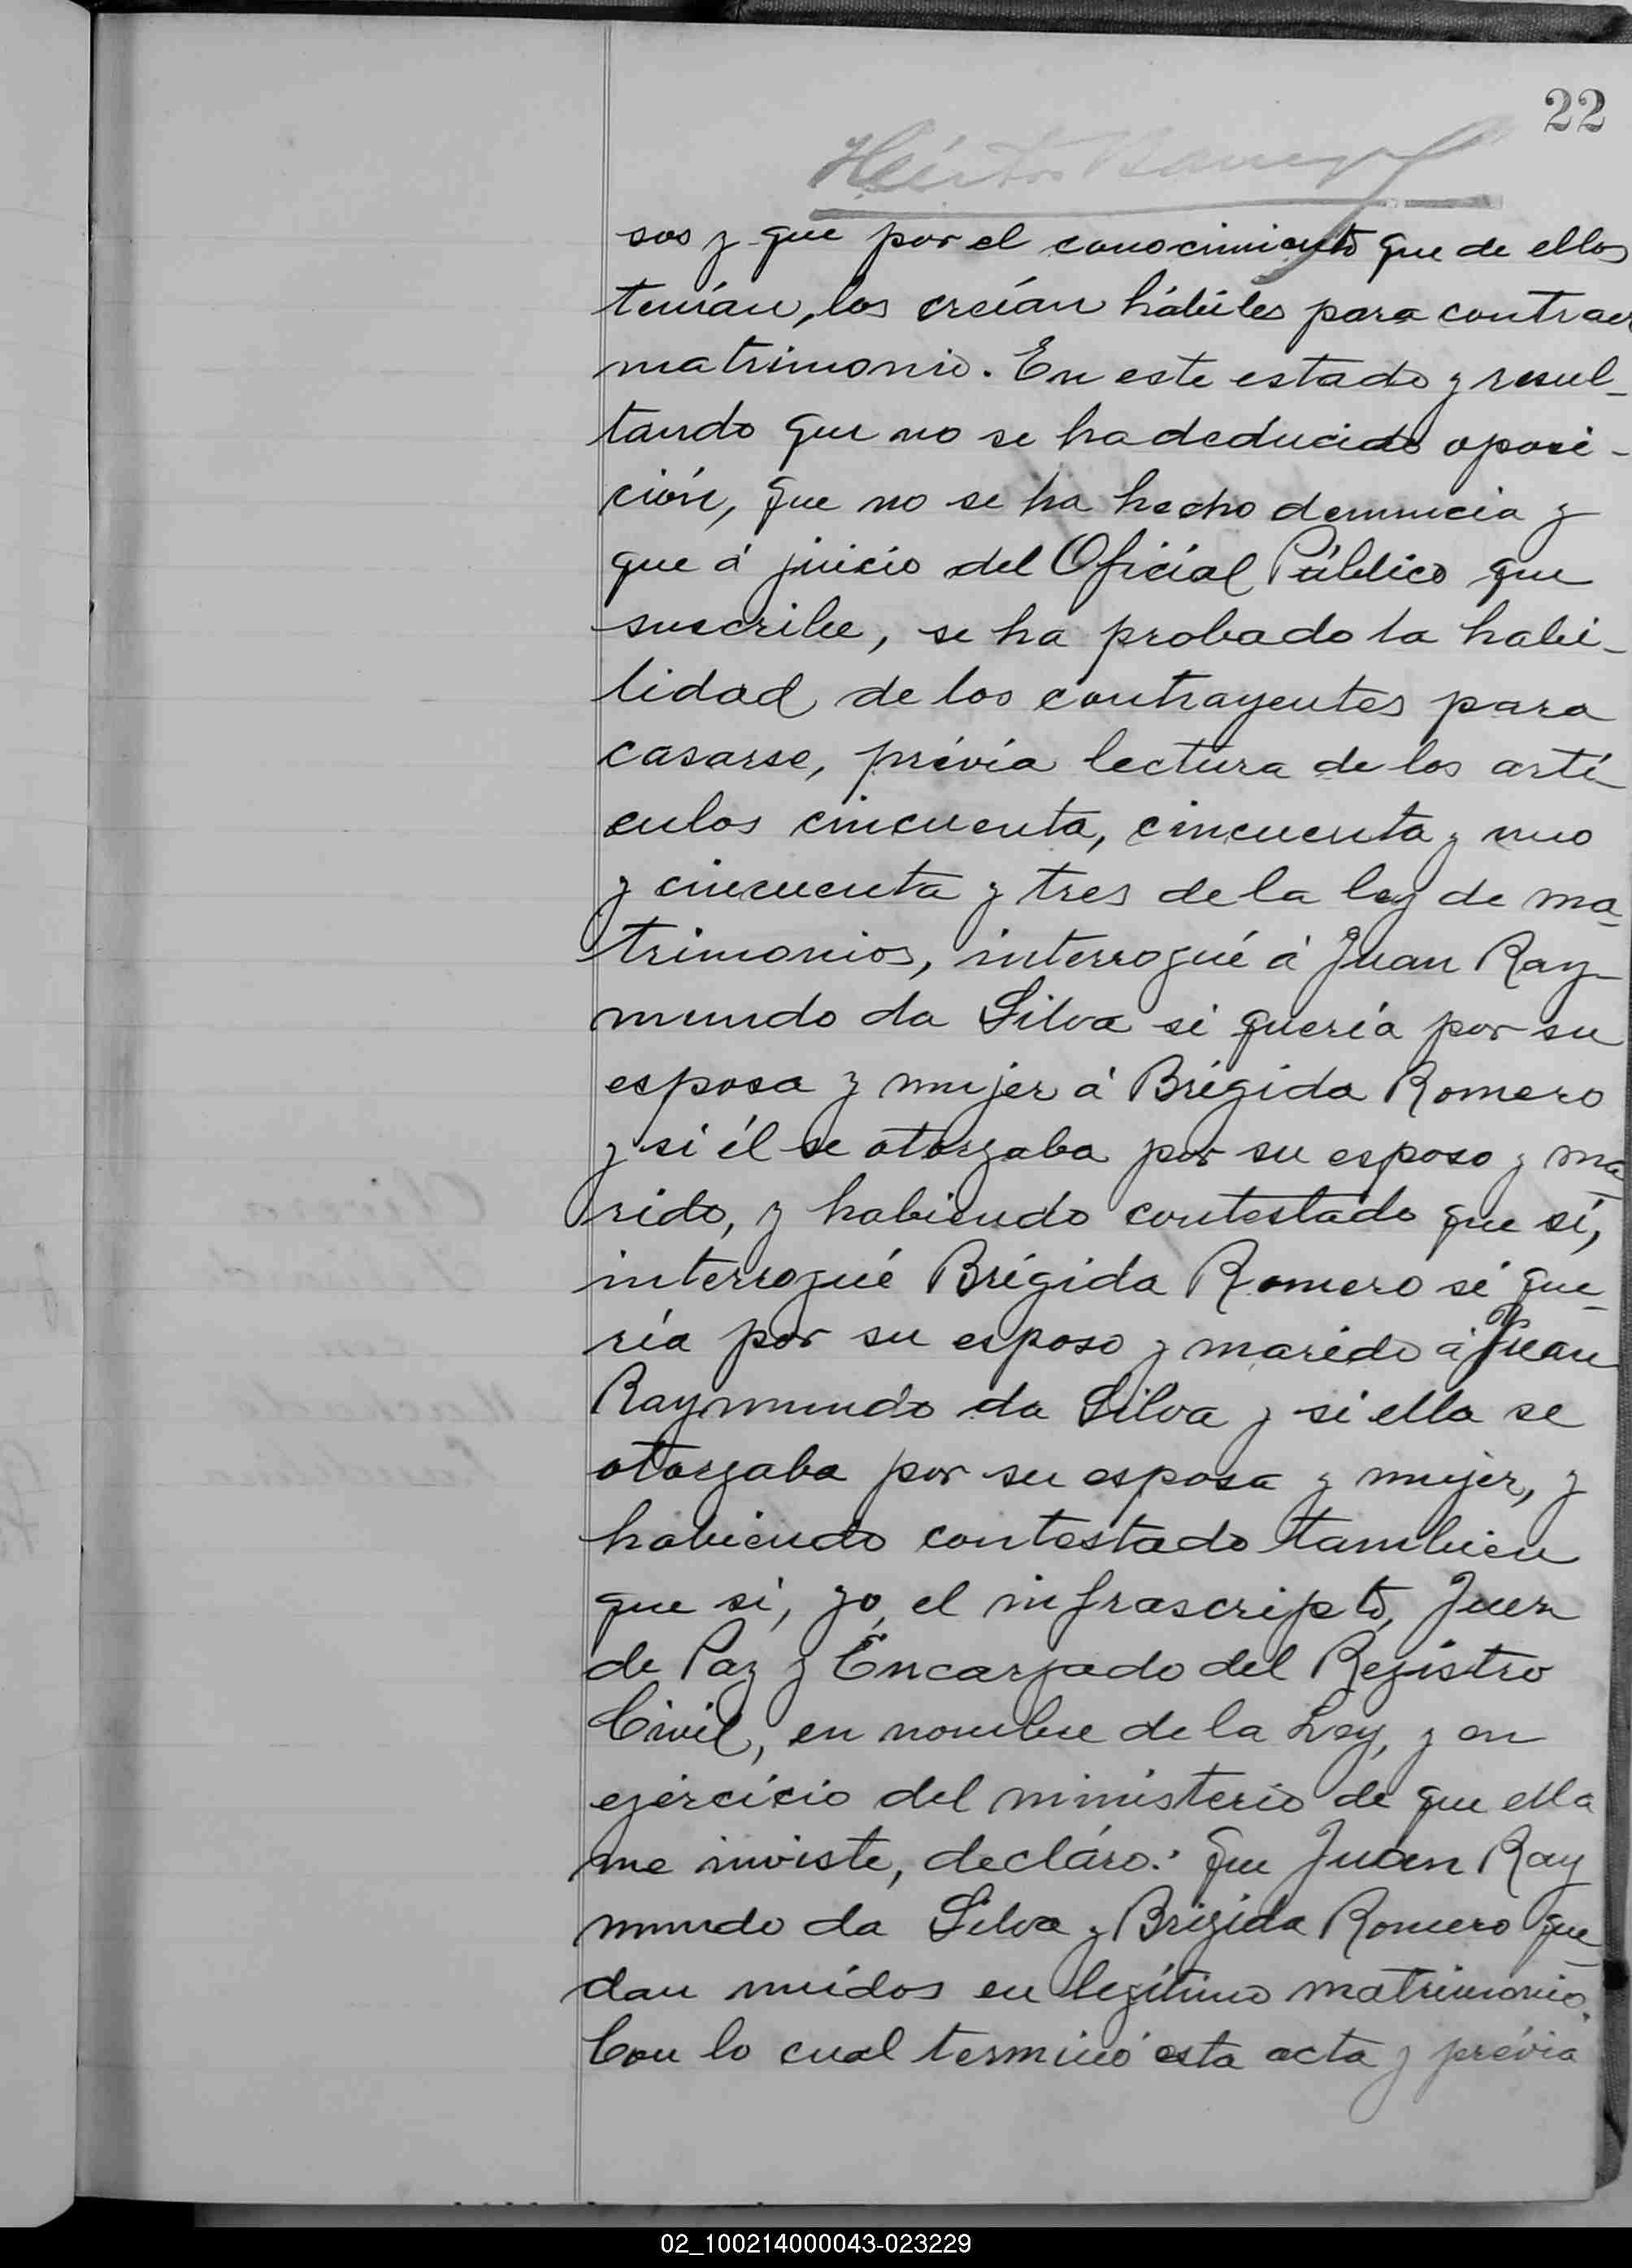 22
Héctor
sos y que por el conocimiento que de ellos
tenían, los creían hábiles para contraer
matrimonio. En este estado y resul-
tando que no se ha deducido oposi-
ción, que no se ha hecho denuncia y
que á juicio del Oficial Público que
suscribe, se ha probado la habi-
lidad de los contrayentes para
casarse, prévia lectura de los artí-
culos cincuenta, cincuenta y uno
y cincuenta y tres de la ley de ma-
trimonios, interrogué á Juan Ray-
mundo da Silva si quería por su
esposa y mujer á Brígida Romero
y si él se otorgaba por su esposo y ma-
rido, y habiendo contestado que sí,
interrogué Brígida Romero si que-
ría por su esposo y marido á Juan
Raymundo da Silva y si ella se
otorgaba por su esposa y mujer, y
habiendo contestado tambien
que si, yo, el infrascripto, Juez
de Paz y Encargado del Registro
Civil, en nombre de la Ley, y en
ejercicio del ministerio de que ella
me inviste, decláro: que Juan Ray
mundo da Silva y Brigida Romero que-
dan unídos en legítimo matrimonio.
Con lo cual terminó esta acta y prévia
02_100214000043-023229